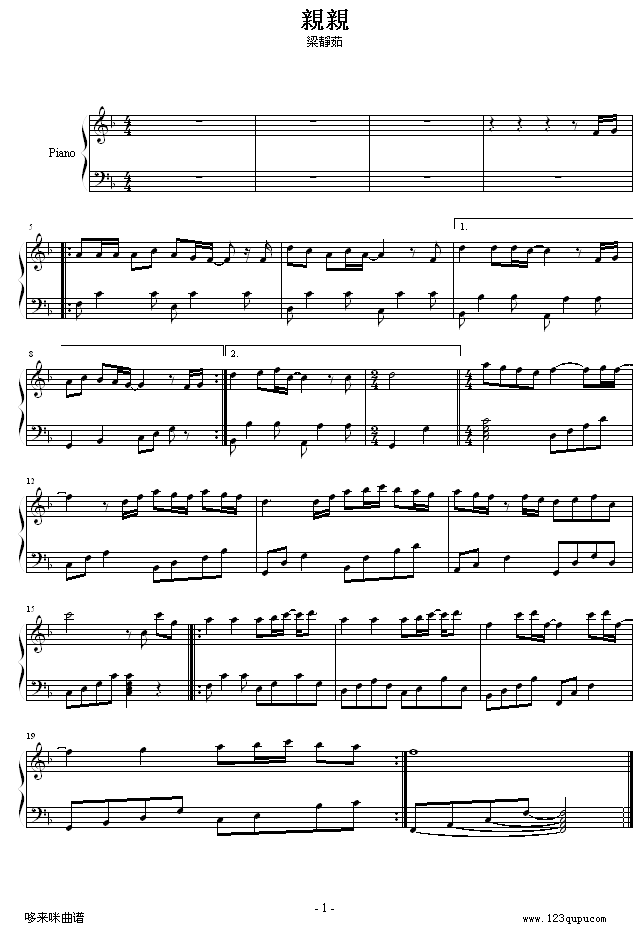 親親
梁靜茹
Piano
5
1.
8
2.
12
15
19
- 1 -
哆来咪曲谱
www.123qupu.com